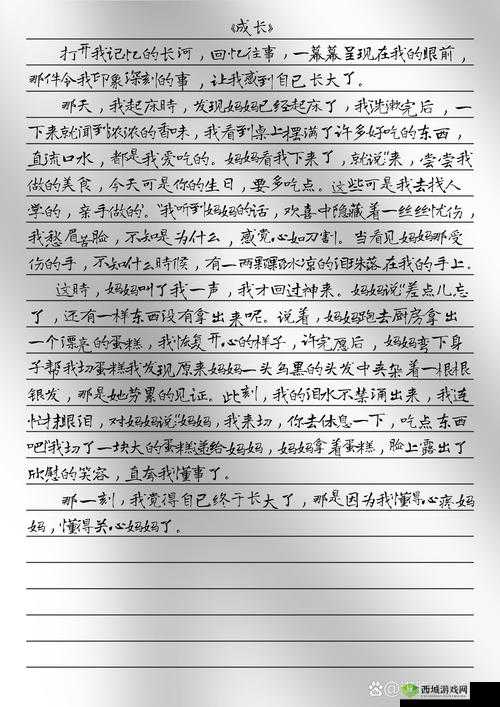 《成长》
打开我记忆的长河，回忆往事，一幕幕呈现在我的眼前，
那件令我印象深刻的事，让我感到自己长大了。
那天，我起床時，发现妈妈已经起床了，我洗漱完后，一
下来就闻到浓浓的香味，我看到桌上摆满了许多好吃的东西，
直流口水，都是我爱吃的。妈妈看我下来了，就说“来，尝尝我
做的美食，今天可是你的生日，要多吃点。这些可是我去找人
学的，亲手做的”。“我听到妈妈的话，欢喜中隐藏着一丝丝忧伤，
我愁眉苦脸，不知是为什么，感觉心如刀割。当看见妈妈那受
伤的手，不知什么時候，有一两颗颗冰凉的泪珠落在我的手上。
这時，妈妈叫了我一声，我才回过神来。妈妈说“差点儿忘
了，还有一样东西没有拿出来呢。说着，妈妈跑去厨房拿出
一个漂亮的蛋糕，我恢复开心的样子，许完愿后，妈妈弯下身
子帮我切蛋糕我发现原来妈妈一头乌黑的头发中夹杂着一根根
银发，那是她劳累的见证。此刻，我的泪水不禁涌出来，我连
忙抹眼泪，对妈妈说“妈妈，我来切，你去休息一下，吃点东西
吧”我切了一块大的蛋糕递给妈妈，妈妈拿着蛋糕，脸上露出了
欣慰的笑容，直夸我懂事了。
那一刻，我觉得自己终于长大了，那是因为我懂得心疼妈
妈，懂得关心妈妈了。
西城游戏网